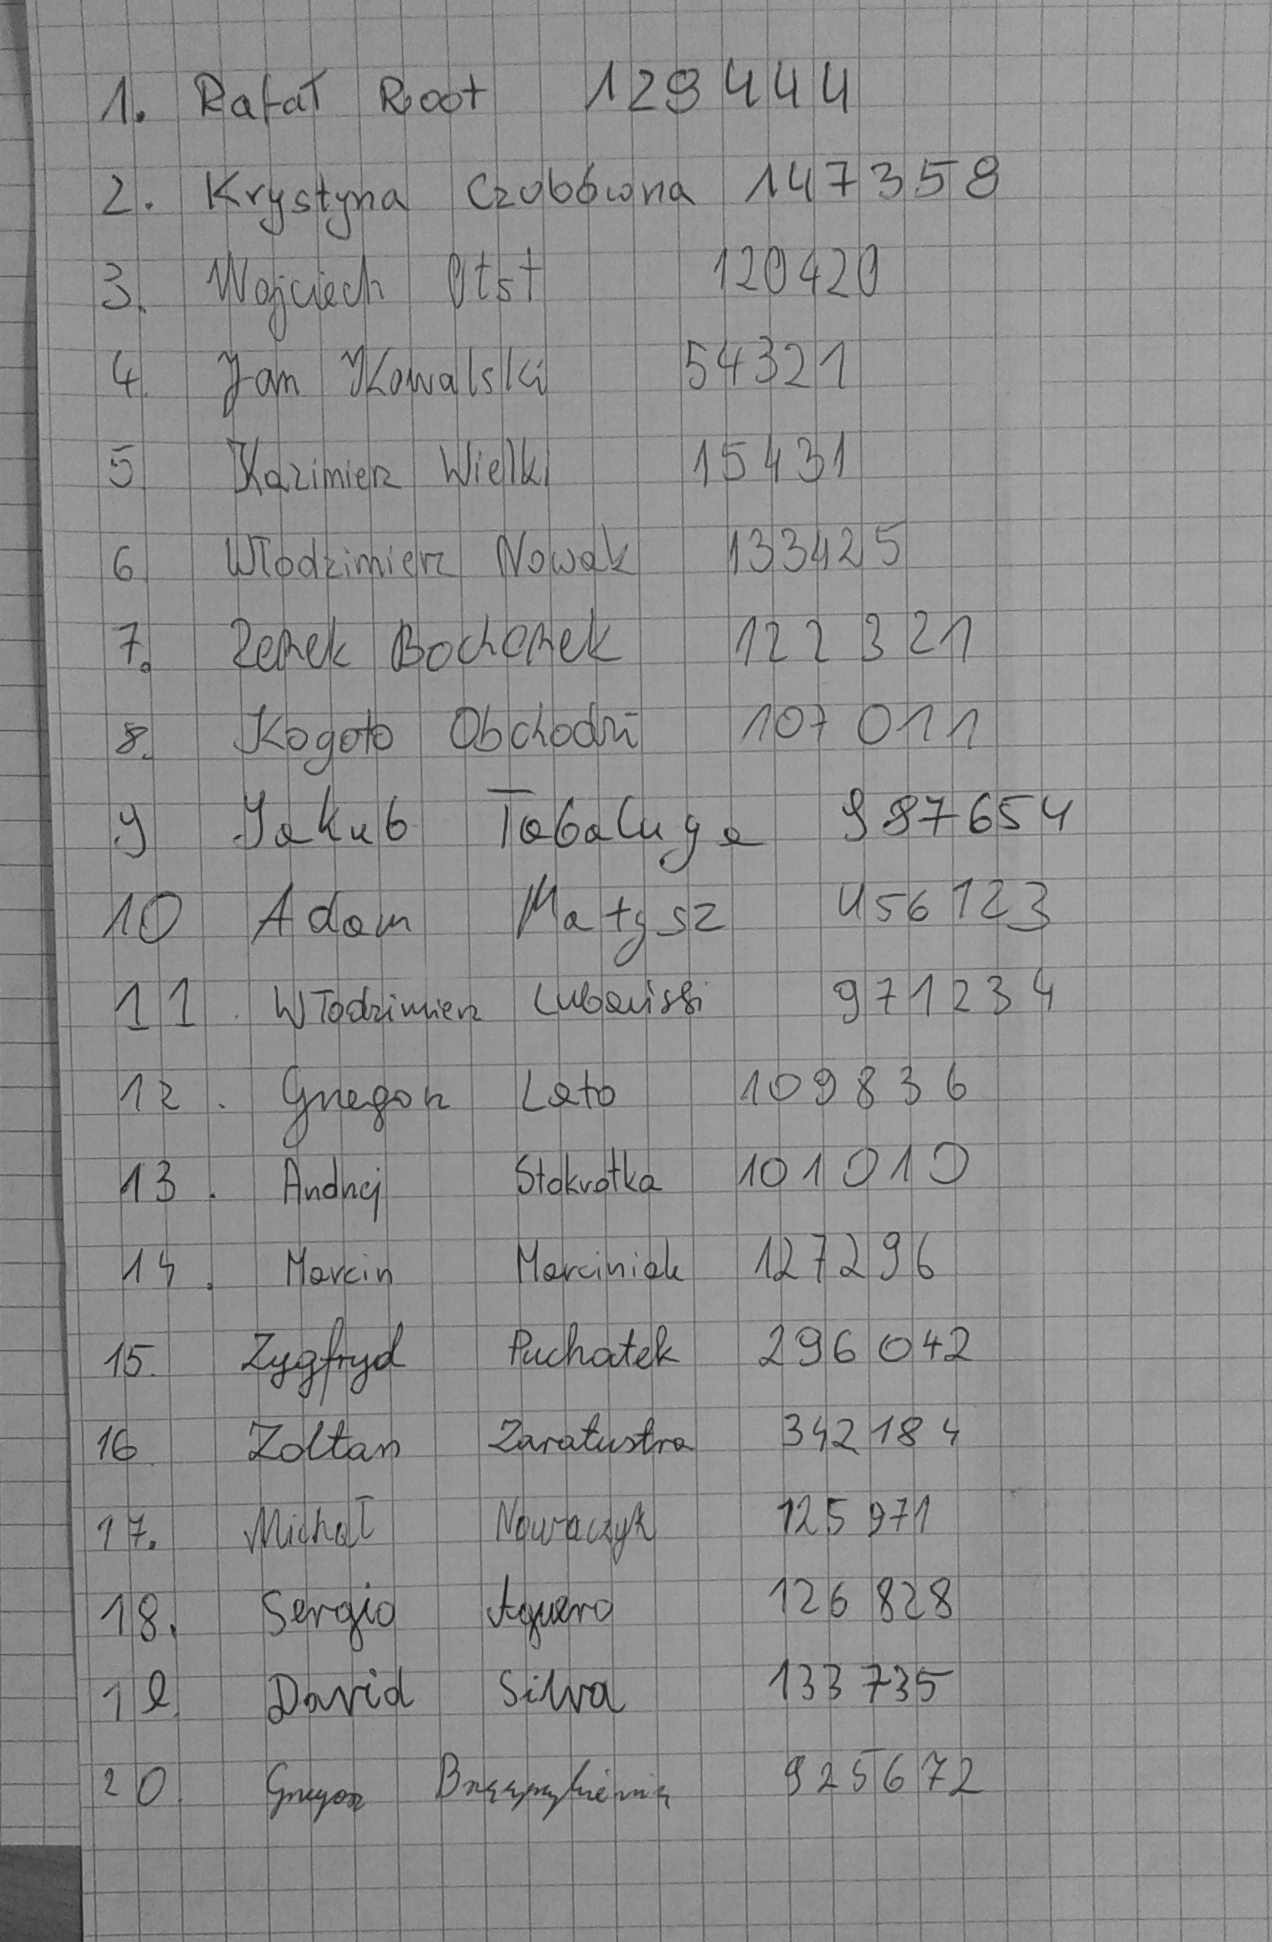 1. Rafał Root 129444
2. Krystyna Czubówna 147358
3. Wojciech Otst 120420
4. Jan Kowalski 54321
5. Kazimierz Wielki 15431
6. Włodzimierz Nowak 133425
7. Zenek Bochenek 122321
8. Kogoto Obchodzi 107011
9 Jakub Tabaluga 987654
10 Adam Małysz 456123
11. Włodzimierz 971234
12. Grzegorz Lato 109836
13. Andrzej Stokrotka 101010
14. Marcin Marciniak 127296
15. Zygfryd Puchatek 296042
16 Zoltan Zaratustra 342184
17. Michał Nowaczyk 125971
18. Sergio Aguero 126828
19. David Silva 133735
20. Grzegorz 925672